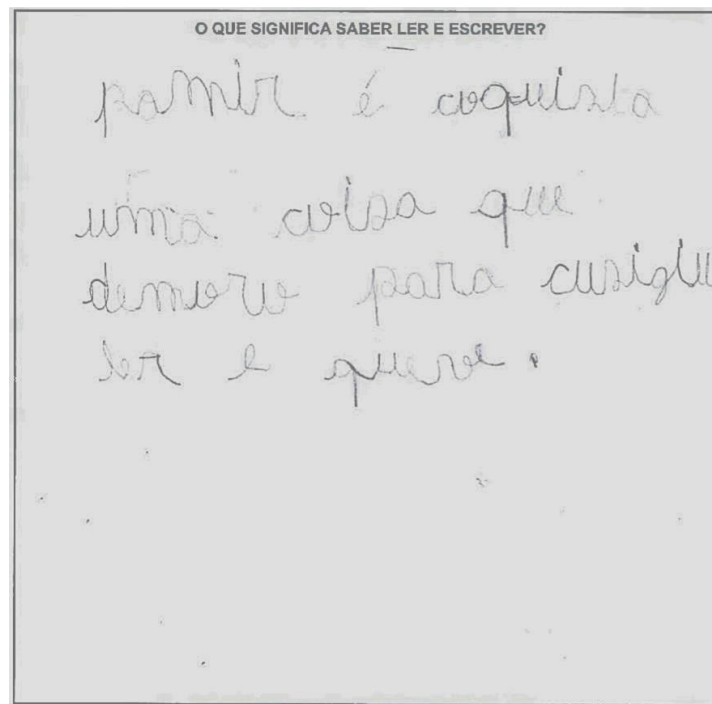 O QUE SIGNIFICA SABER LER E ESCREVER?
pamir é coquista
uma coisa que
demoro para
ler e